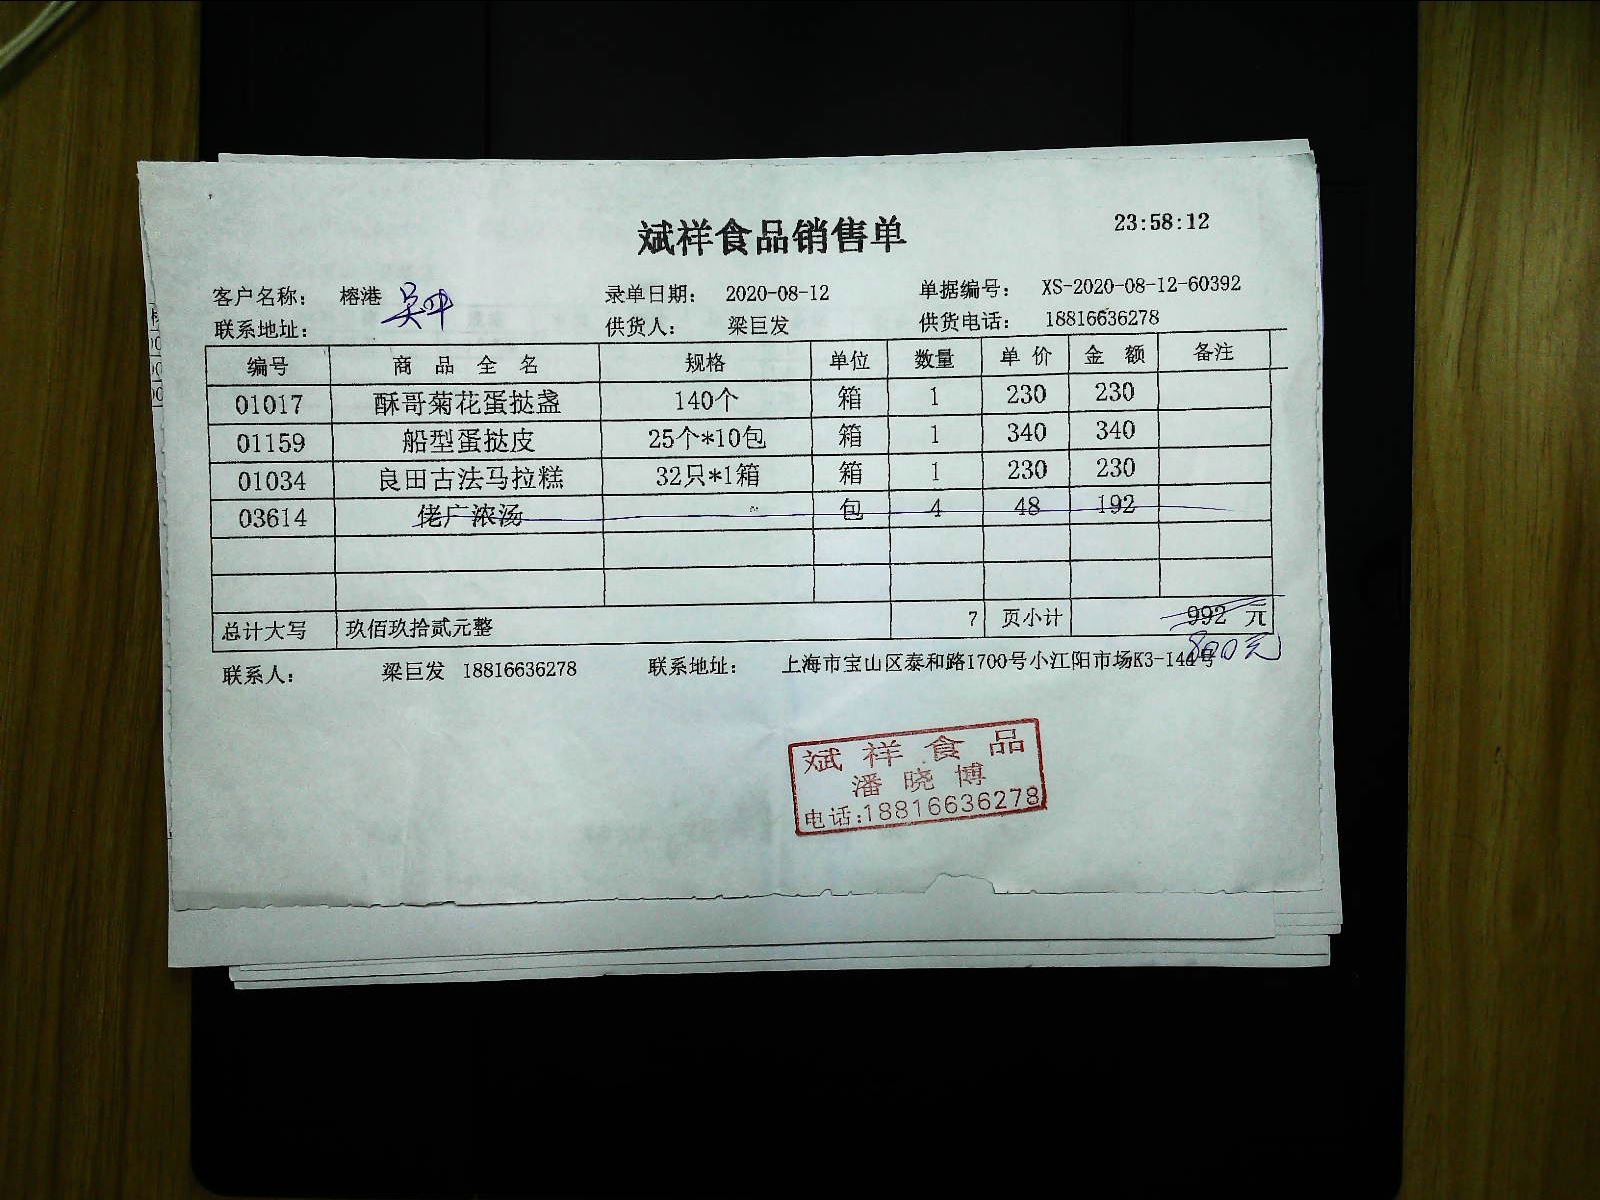 斌祥食品销售单
23:58:12
客户名称： 榕港 录单日期： 2020-08-12 单据编号： XS-2020-08-12-60392
联系地址： 供货人： 梁巨发 供货电话： 18816636278
编号 商 品 全 名 规格 单位 数量 单 价 金 额 备注
01017 酥哥菊花蛋挞盏 140个 箱 1 230 230
01159 船型蛋挞皮 25个*10包 箱 1 340 340
01034 良田古法马拉糕 32只*1箱 箱 1 230 230
03614 佬广浓汤 包 4 48 192
总计大写 玖佰玖拾贰元整 7 页小计 992 元
800元
联系人： 梁巨发 18816636278 联系地址： 上海市宝山区泰和路1700号小江阳市场K3-144号
斌祥食品
潘晓博
电话:18816636278